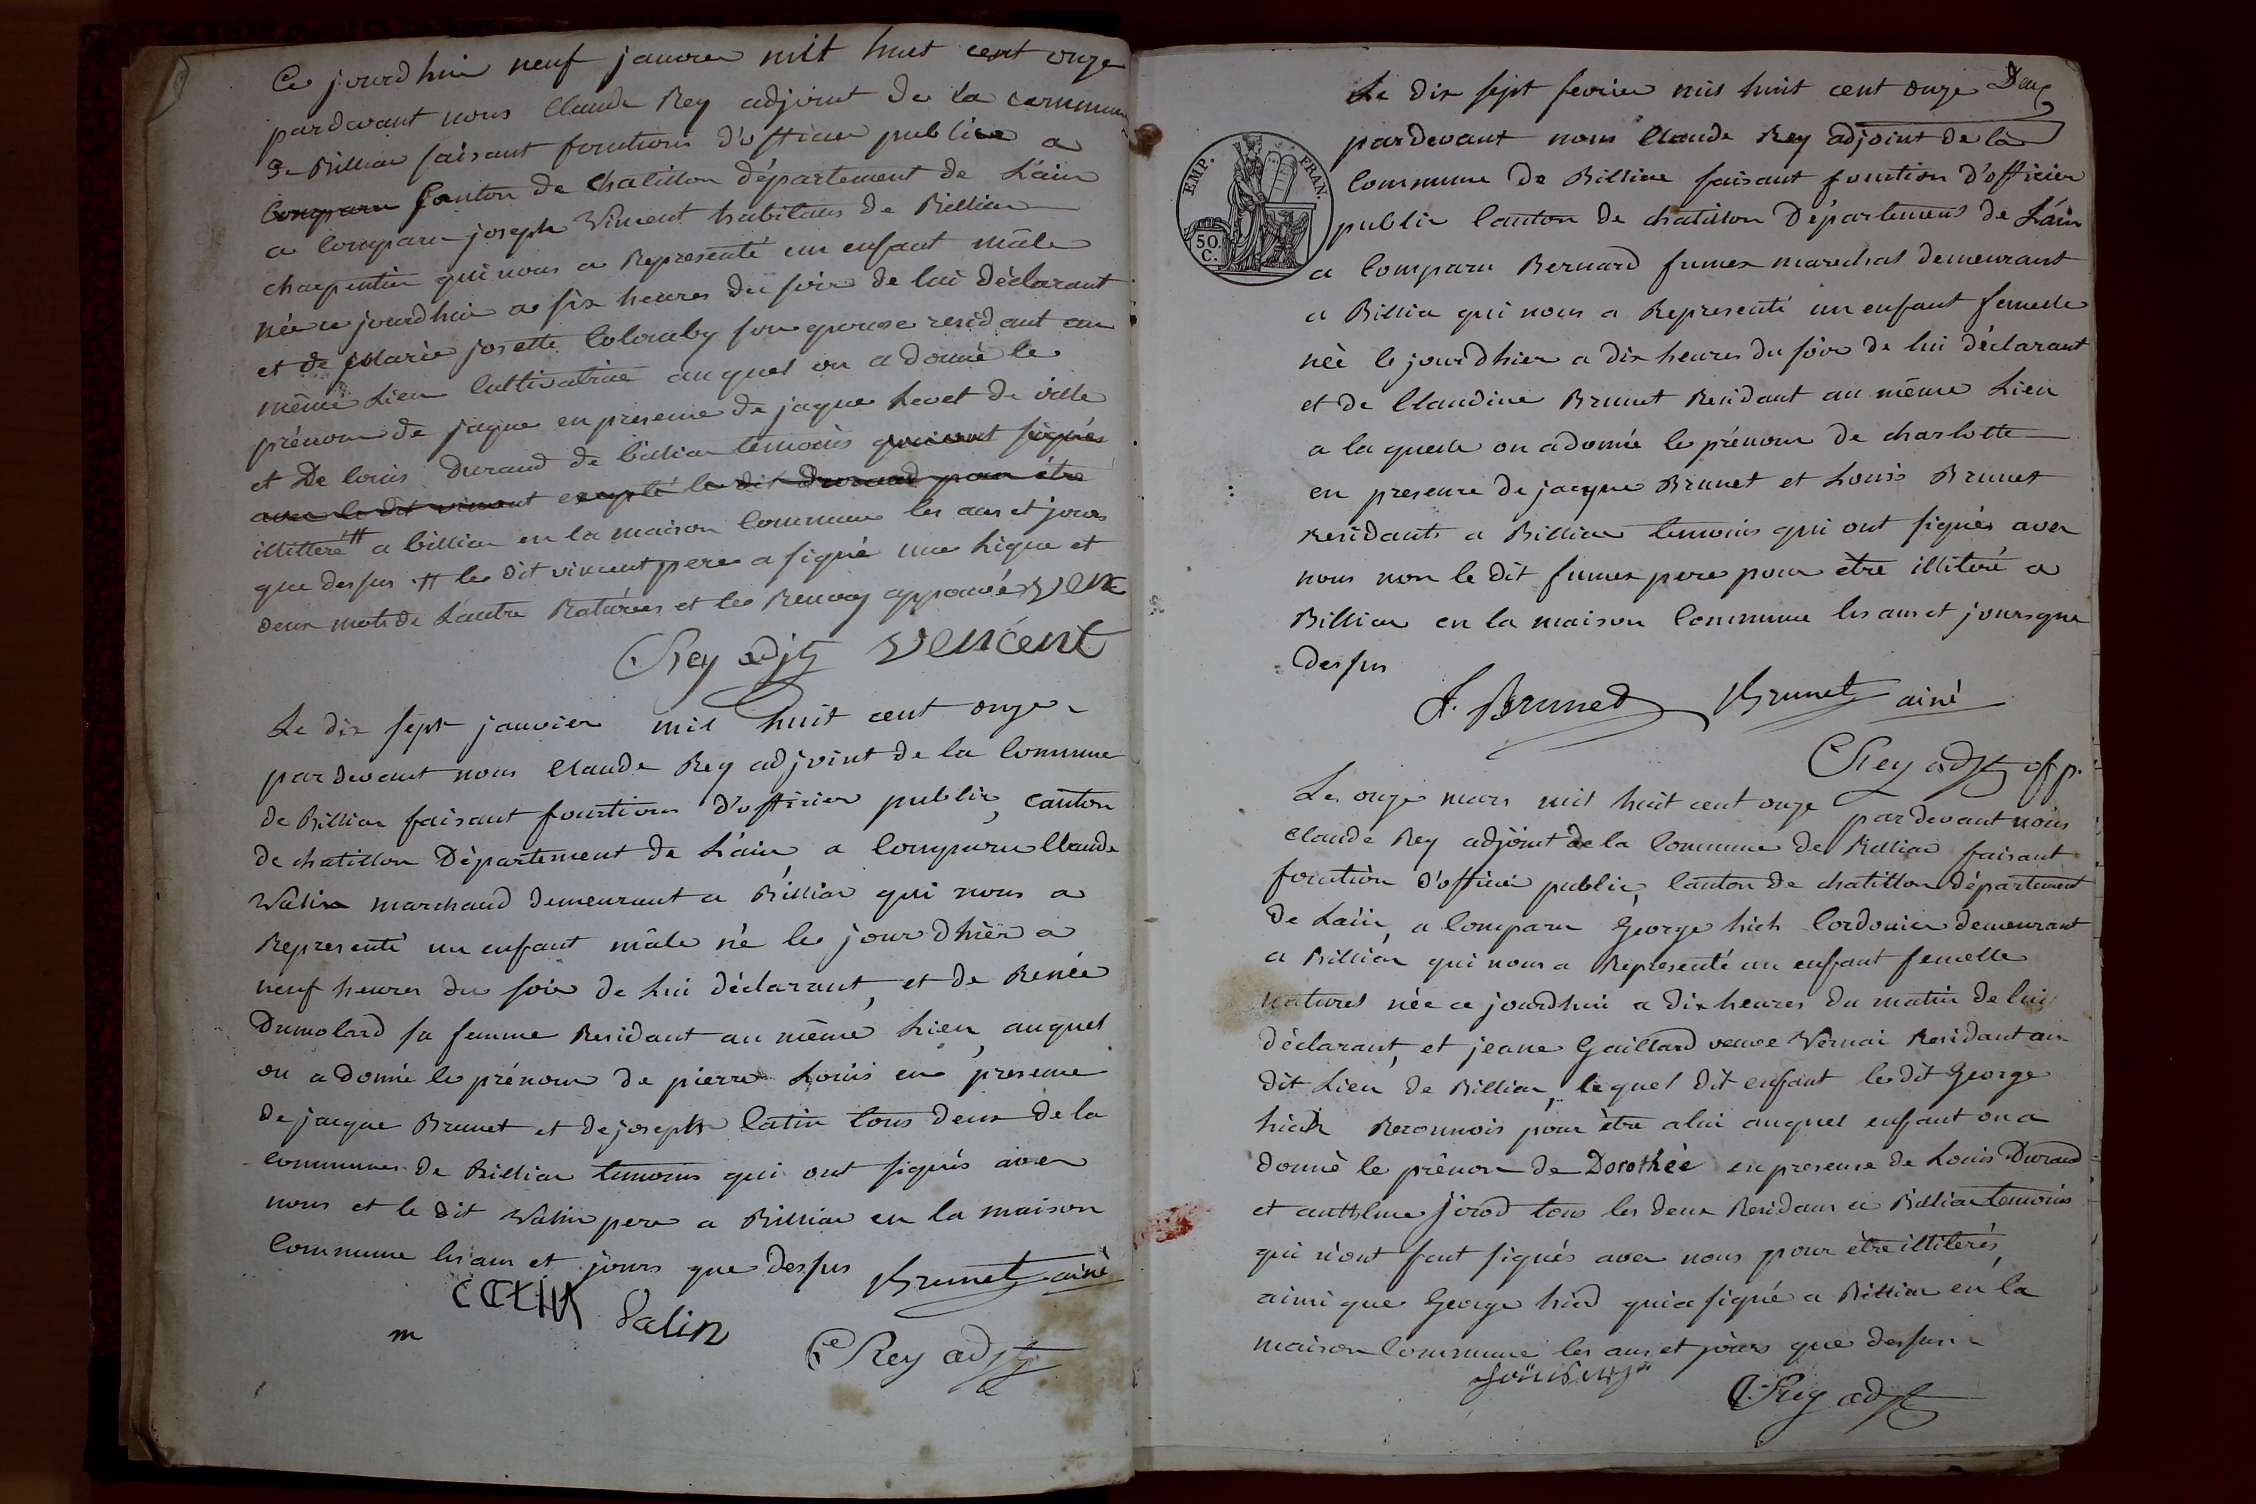 Ce jourd'hui neuf janvier mil huit cent onze
pardevant nous Claude Rey adjoint de la commune
de Billiar faisant fonctions d'officier public a
comparu Canton de Chatillon département de L'ain
a comparu joseph Vincent habitans de Billiar
charpentier qui nous a Representé un enfant mâle
née ce jourd'hui a six heures du soir de lui déclarant
et de Marie josette Colomby son epouse residant au
même Lieu Cultivatrice auquel on a donné le
prénom de jaque en presence de jaque hevet de ville
et De louis Durand de billiar temoins qui ont signés
avec le dit vincent excepté le dit durand pour être
illitteré # a billiar en la maison Commune les ans et jours
que dessus # le dit vincent pere a signé une Ligne et
deux mots de L'autre Raturées et le Renvoy approuvé venc
C. Rey adjt vencent
Le dix sept janvier mil huit cent onze
par devant nous Claude Rey adjoint de la Commune
de Billiar faisant fonctions d'officier public, canton
de chatillon Département de L'ain a Comparu Claude
Valin marchand demeurant a Billiar qui nous a
Representé un enfant mâle né le jour d'hier a
neuf heures du soir de Lui déclarant, et de Renée
Dumolard sa femme Residant au même Lieu, auquel
on a donné le prénom de pierre Louis en presence
de jacque Brunet et de joseph Catin tous deux de la
Communes de Billiar temoins qui ont signés avec
nous et le dit Valin pere a Billiar en la maison
Commune les ans et jours que dessus Brunet ainé
Valin
Ce Rey adjt
Le dix sept fevrier mil huit cent onze Deux
pardevant nous Claude Rey adjoint de la
EMP. FRAN.
50. C.
Commune de Billiar faisant fonction d'officier
public Canton de chatillon Département de L'ain
a Comparu Bernard fumex marechal demeurant
a Billiar qui nous a Representé un enfant femelle
née le jourd'hier a dix heures du soir de lui déclarant
et de Claudine Brunet Residant au même Lieu
a la quelle on a donnée le prénom de charlotte
en presence de jacque Brunet et Louis Brunet
residants a Billiar temoins qui ont signés avec
nous non le dit fumex pere pour être illitéré a
Billiar en la maison Commune les ans et jours que
dessus
Brunet Brunet ainé
C Rey adjt off p.
Le onze mars mil huit cent onze par devant nous
Claude Rey adjoint de la Commune de Billiar faisant
fonction d'officier public, Canton de chatillon département
de L'ain, a Comparu George hich Cordonier demeurant
a Billiar qui nous a Representé un enfant femelle
naturel née ce jourd'hui a dix heures du matin de lui
déclarant, et jeane Gaillard veuve Vernai Residant au
dit Lieu de Billiar, lequel dit enfant le dit George
hich Reconnois pour être a lui auquel enfant on a
donné le prénom de Dorothée en presence de Louis Durand
et anthelme jirod tous les deux Residans a Billiar temoins
qui n'ont font signés avec nous pour être illiterés,
ainsi que George hich qui a signé a Billiar en la
maison Commune les ans et jours que dessus
C. Rey adjt